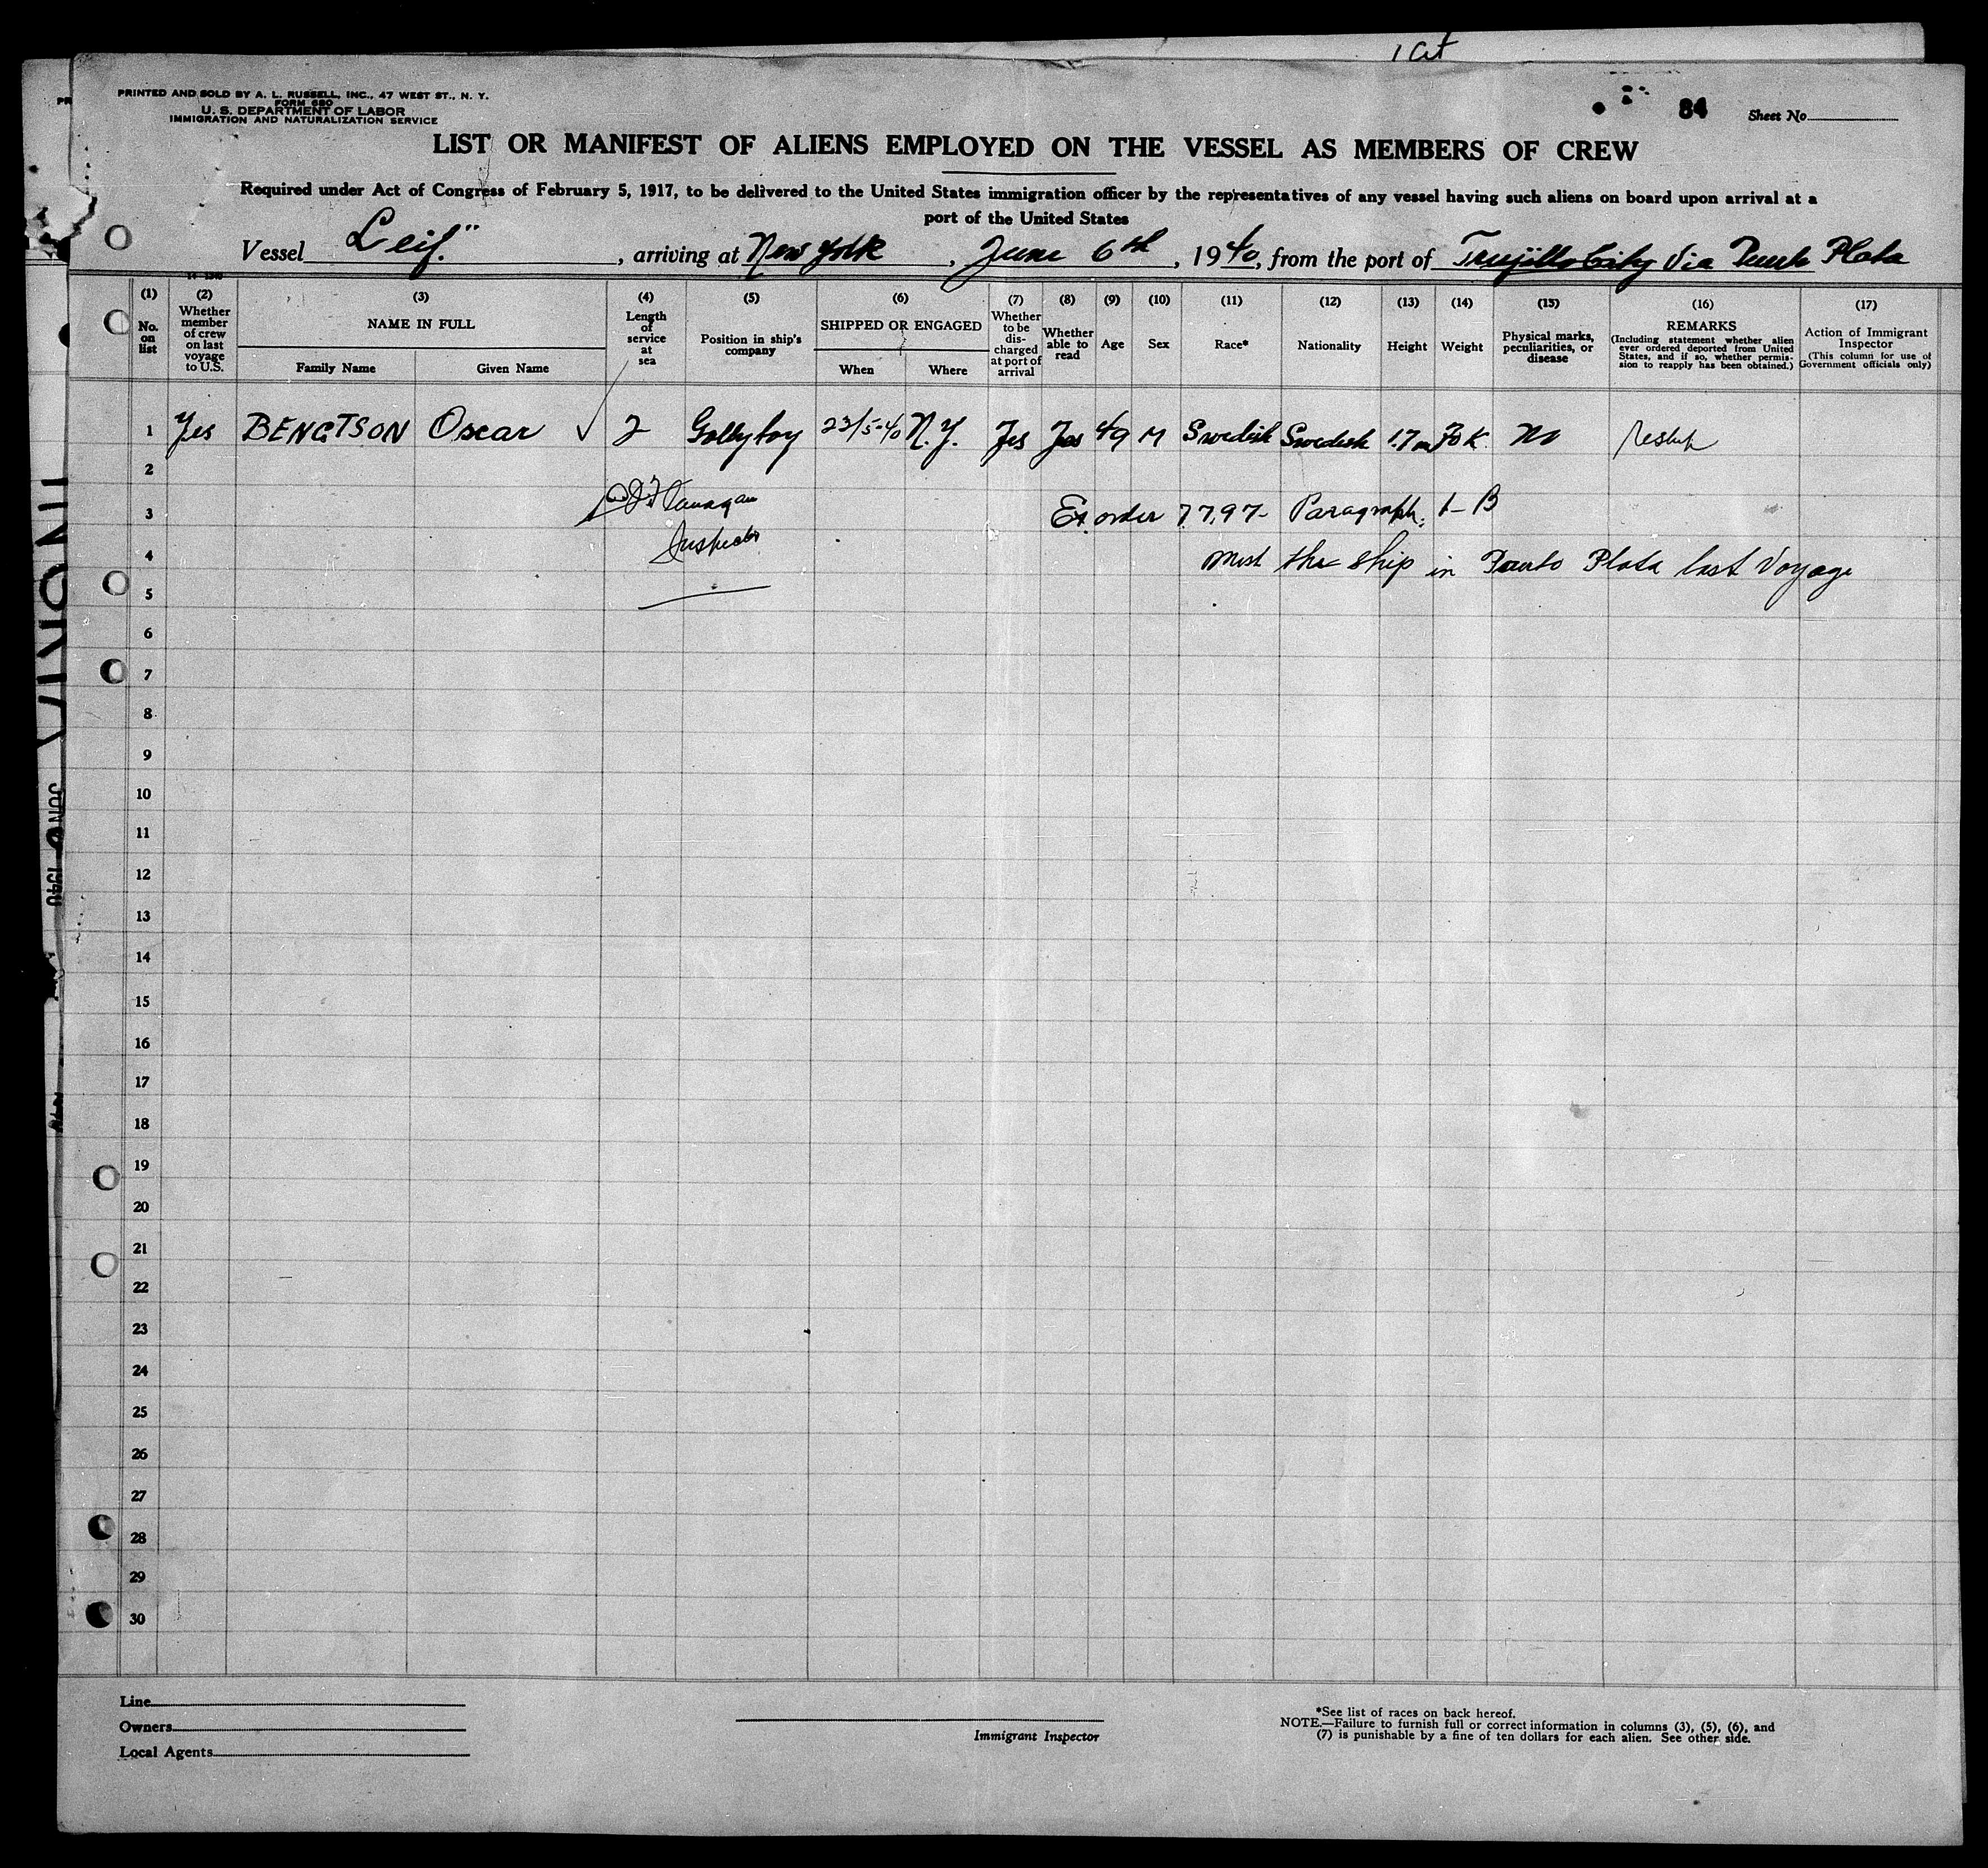 1 Cit
PRINTED AND SOLD BY A. L. RUSSELL, INC., 47 WEST ST., N. Y.
FORM 680
U. S. DEPARTMENT OF LABOR
IMMIGRATION AND NATURALIZATION SERVICE
84 Sheet No.
LIST OR MANIFEST OF ALIENS EMPLOYED ON THE VESSEL AS MEMBERS OF CREW
Required under Act of Congress of February 5, 1917, to be delivered to the United States immigration officer by the representatives of any vessel having such aliens on board upon arrival at a
port of the United States
Vessel Leif", arriving at New York, June 6th, 1940, from the port of Trujillo City Via Puerto Plata
(1) No. on list
(2) Whether member of crew on last voyage to U.S.
(3) NAME IN FULL
Family Name Given Name
(4) Length of service at sea
(5) Position in ship's company
(6) SHIPPED OR ENGAGED
When Where
(7) Whether to be discharged at port of arrival
(8) Whether able to read
(9) Age
(10) Sex
(11) Race*
(12) Nationality
(13) Height
(14) Weight
(15) Physical marks, peculiarities, or disease
(16) REMARKS
(Including statement whether alien ever ordered deported from United States, and if so, whether permission to reapply has been obtained.)
(17) Action of Immigrant Inspector
(This column for use of Government officials only)
1 Yes BENGTSON Oscar ✓ 2 Gallyboy 23/5-40 N.Y. Yes Yes 49 M Swedish Swedish 1.7m 70 K. No
2
3 Flanagan Ex order 7797- Paragraph, 1-B
Inspector
4 mist the ship in Puerto Plata last Voyage
5
6
7
8
9
10
11
12
13
14
15
16
17
18
19
20
21
22
23
24
25
26
27
28
29
30
Line
Owners
Local Agents
Immigrant Inspector
*See list of races on back hereof.
NOTE.—Failure to furnish full or correct information in columns (3), (5), (6), and
(7) is punishable by a fine of ten dollars for each alien. See other side.
JUN 6 1940